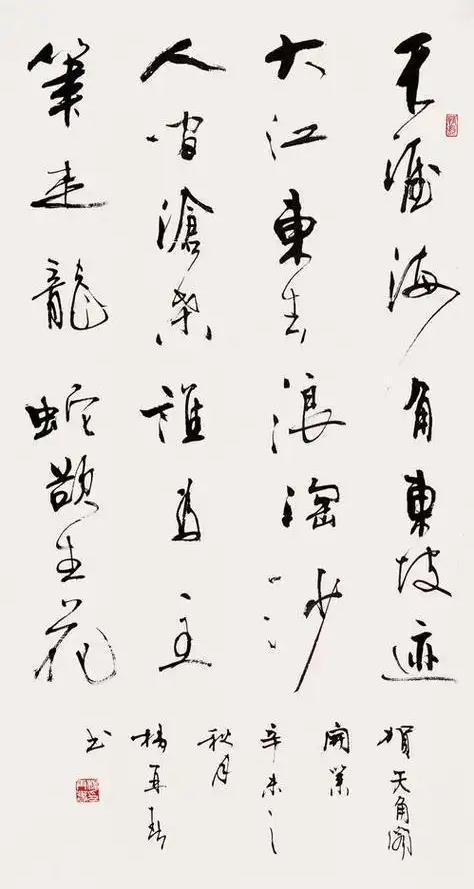 天涯海角東坡迹
大江東去浪淘沙
人間滄桑誰為主
筆走龍蛇生花
賀天角
開業
辛未之
秋月
楊再春
书